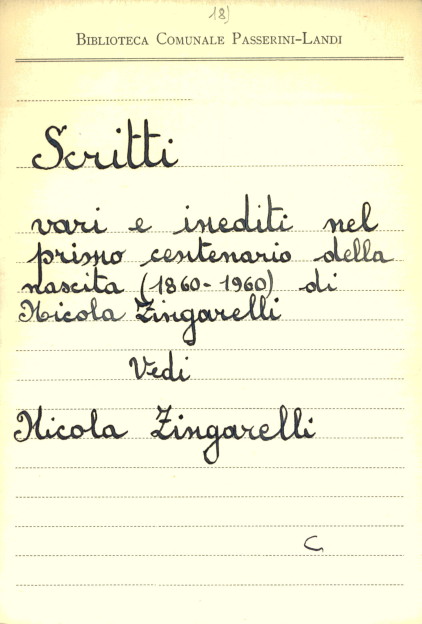 18)
BIBLIOTECA COMUNALE PASSERINI-LANDI
Scritti
vari e inediti nel
primo centenario della
nascita (1860-1960) di
Nicola Zingarelli
Vedi
Nicola Zingarelli
C